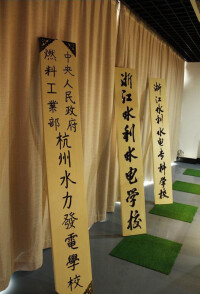 中央人民政府
燃料工業部
杭州水力發電學校
浙江水利水电学校
浙江水利水电专科学校